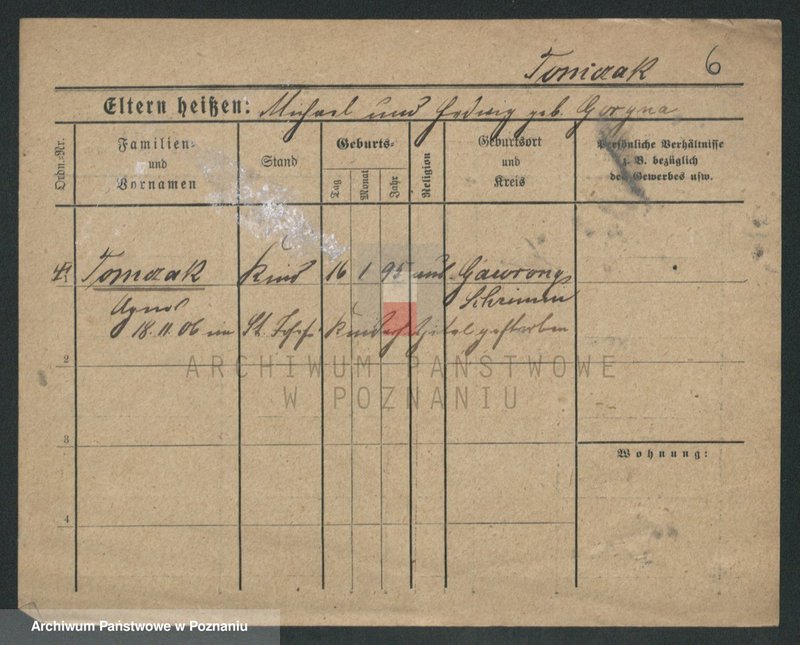 Tomczak 6
Eltern heißen: Michael und Hedwig geb. Gorzna
Ordn.-Nr.
Familien- und Vornamen
Stand
Geburts-
Tag
Monat
Jahr
Religion
Geburtsort und Kreis
Persönliche Verhältnisse z. B. bezüglich des Gewerbes usw.
Tomczak Kind 16 1 95 Gawrony
Schrimm
Agnes
18.11.06 im St. Josefs Kinderhospital gestorben
2
3
4
Wohnung:
ARCHIWUM PAŃSTWOWE
W POZNANIU
Archiwum Państwowe w Poznaniu